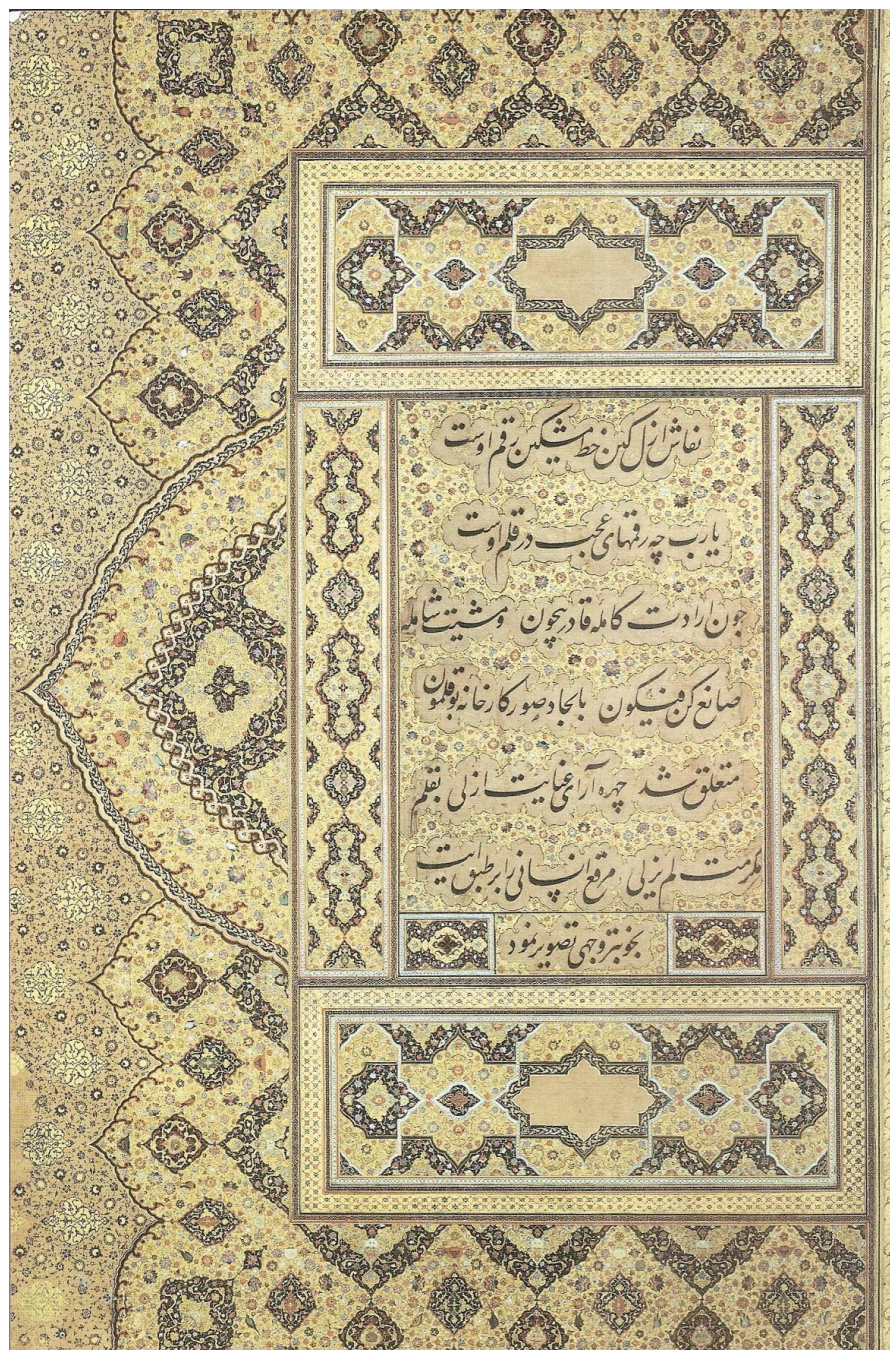 نقاش ازل کین خط مشکین رقم اوست
یارب چه رقمهای عجب در قلم اوست
چون ارادت کامله قادر بیچون و مشیت شامله
صانع کن فیکون بایجاد صور کارخانه بوقلمون
متعلق شد چهره آرای عنایت ازلی بقلم
مکرمت لم یزلی مرقع انسانی را بر طبق آیت
بخوبتر وجهی تصویر نمود